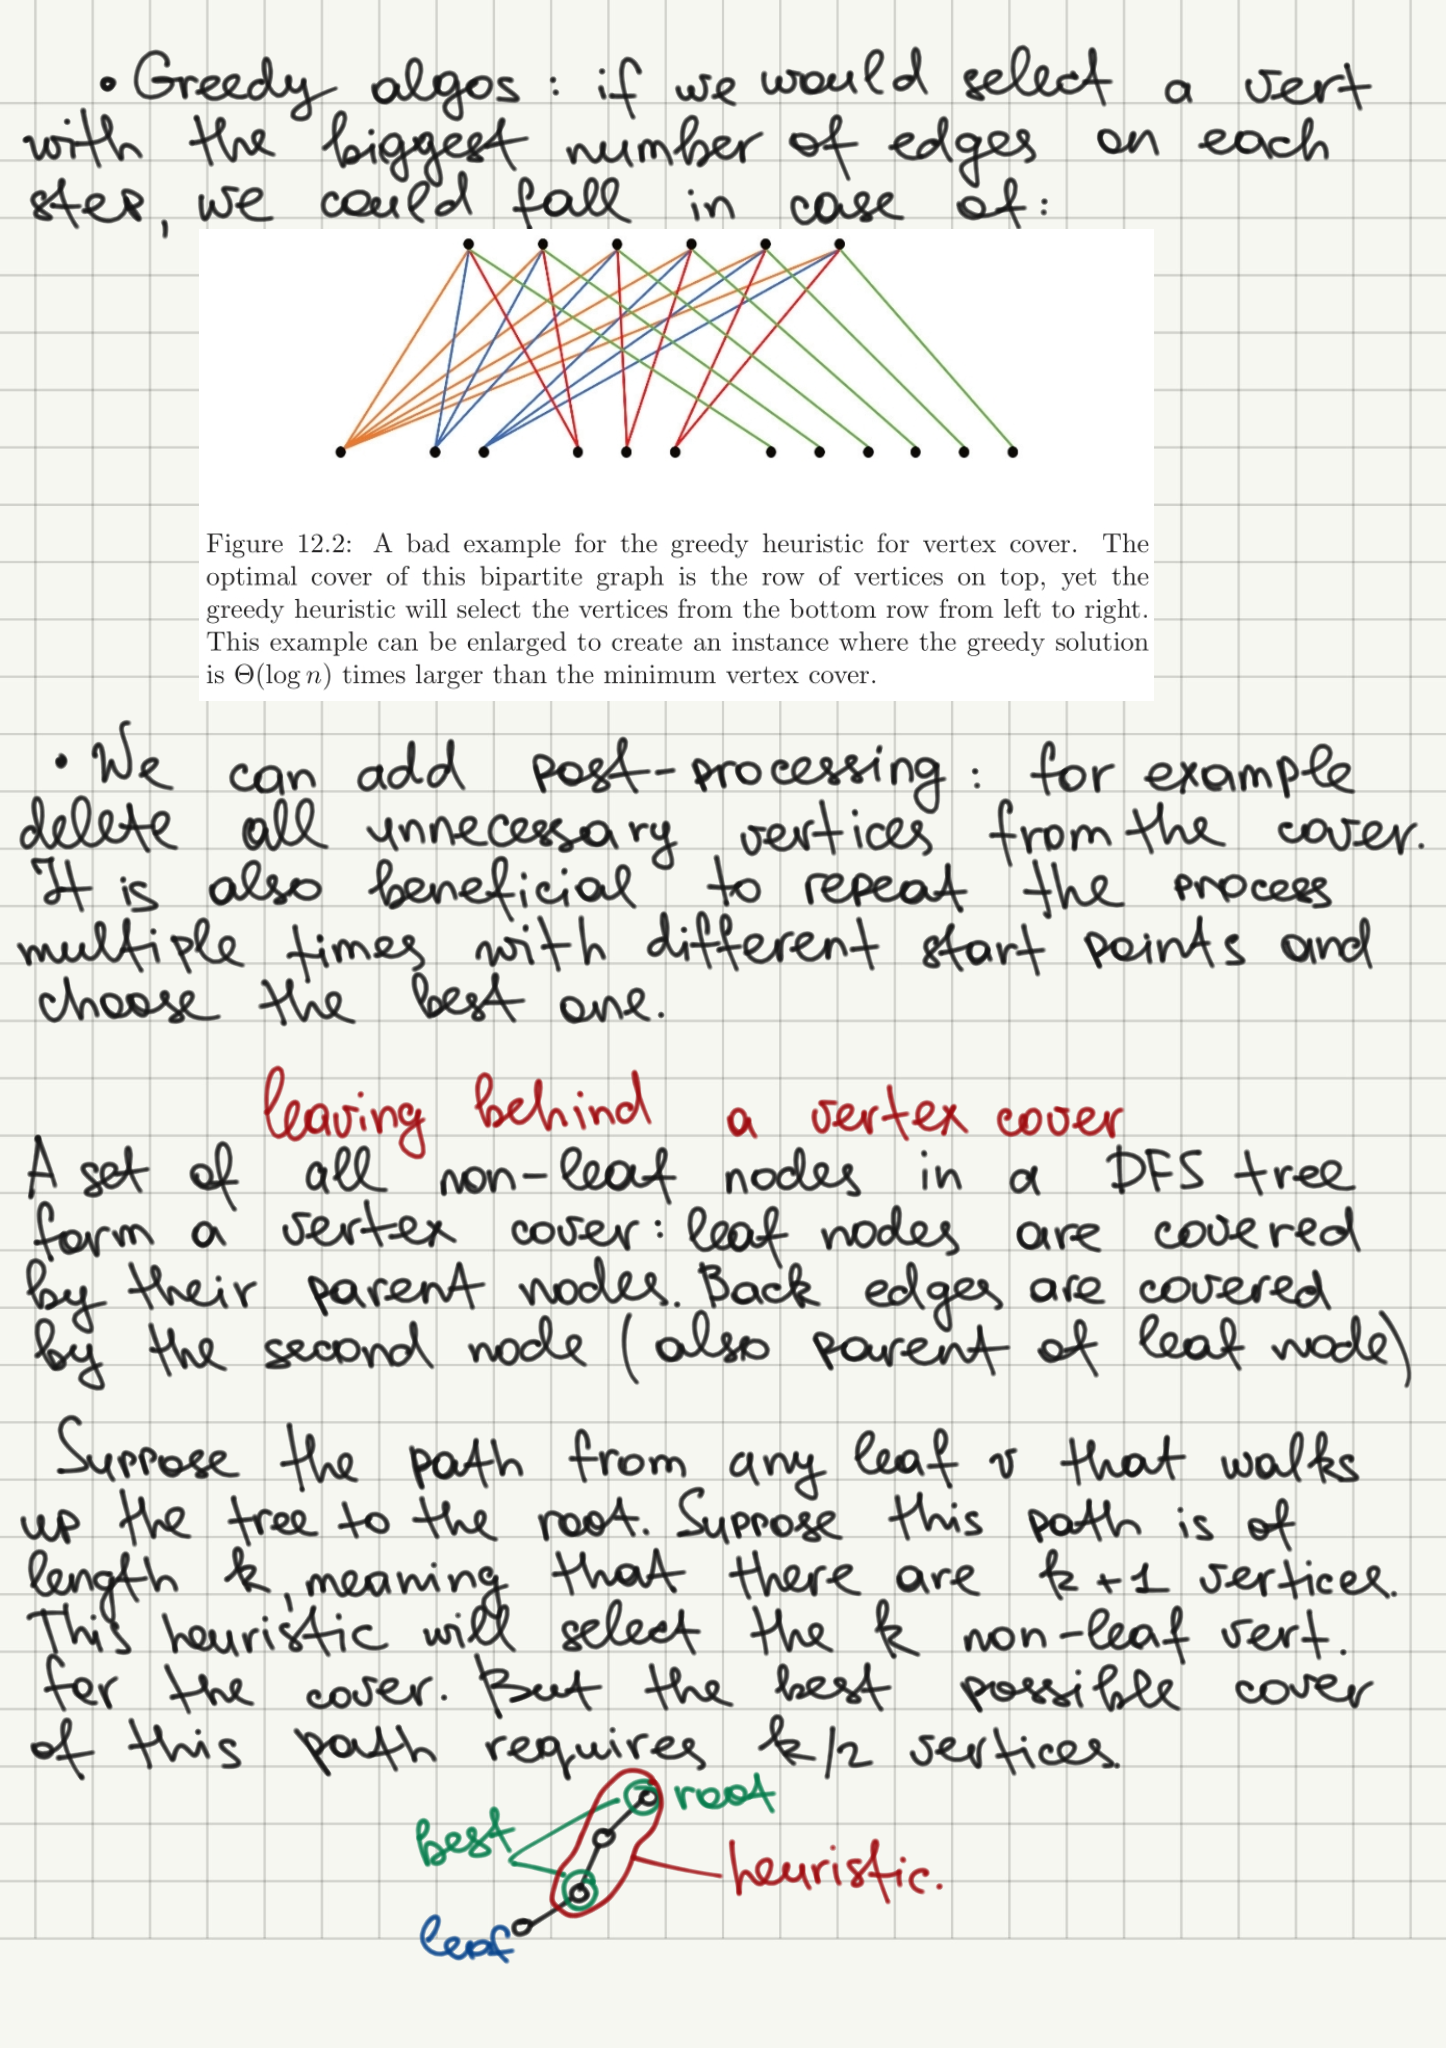 • Greedy algos : if we would select a vert
with the biggest number of edges on each
step, we could fall in case of:
Figure 12.2: A bad example for the greedy heuristic for vertex cover. The
optimal cover of this bipartite graph is the row of vertices on top, yet the
greedy heuristic will select the vertices from the bottom row from left to right.
This example can be enlarged to create an instance where the greedy solution
is Θ(log n) times larger than the minimum vertex cover.
• We can add post-processing : for example
delete all unnecessary vertices from the cover.
It is also beneficial to repeat the process
multiple times with different start points and
choose the best one.
leaving behind a vertex cover
A set of all non-leaf nodes in a DFS tree
form a vertex cover: leaf nodes are covered
by their parent nodes. Back edges are covered
by the second node (also parent of leaf node)
Suppose the path from any leaf v that walks
up the tree to the root. Suppose this path is of
length k, meaning that there are k+1 vertices.
This heuristic will select the k non-leaf vert.
for the cover. But the best possible cover
of this path requires k/2 vertices.
root
best
heuristic.
leaf